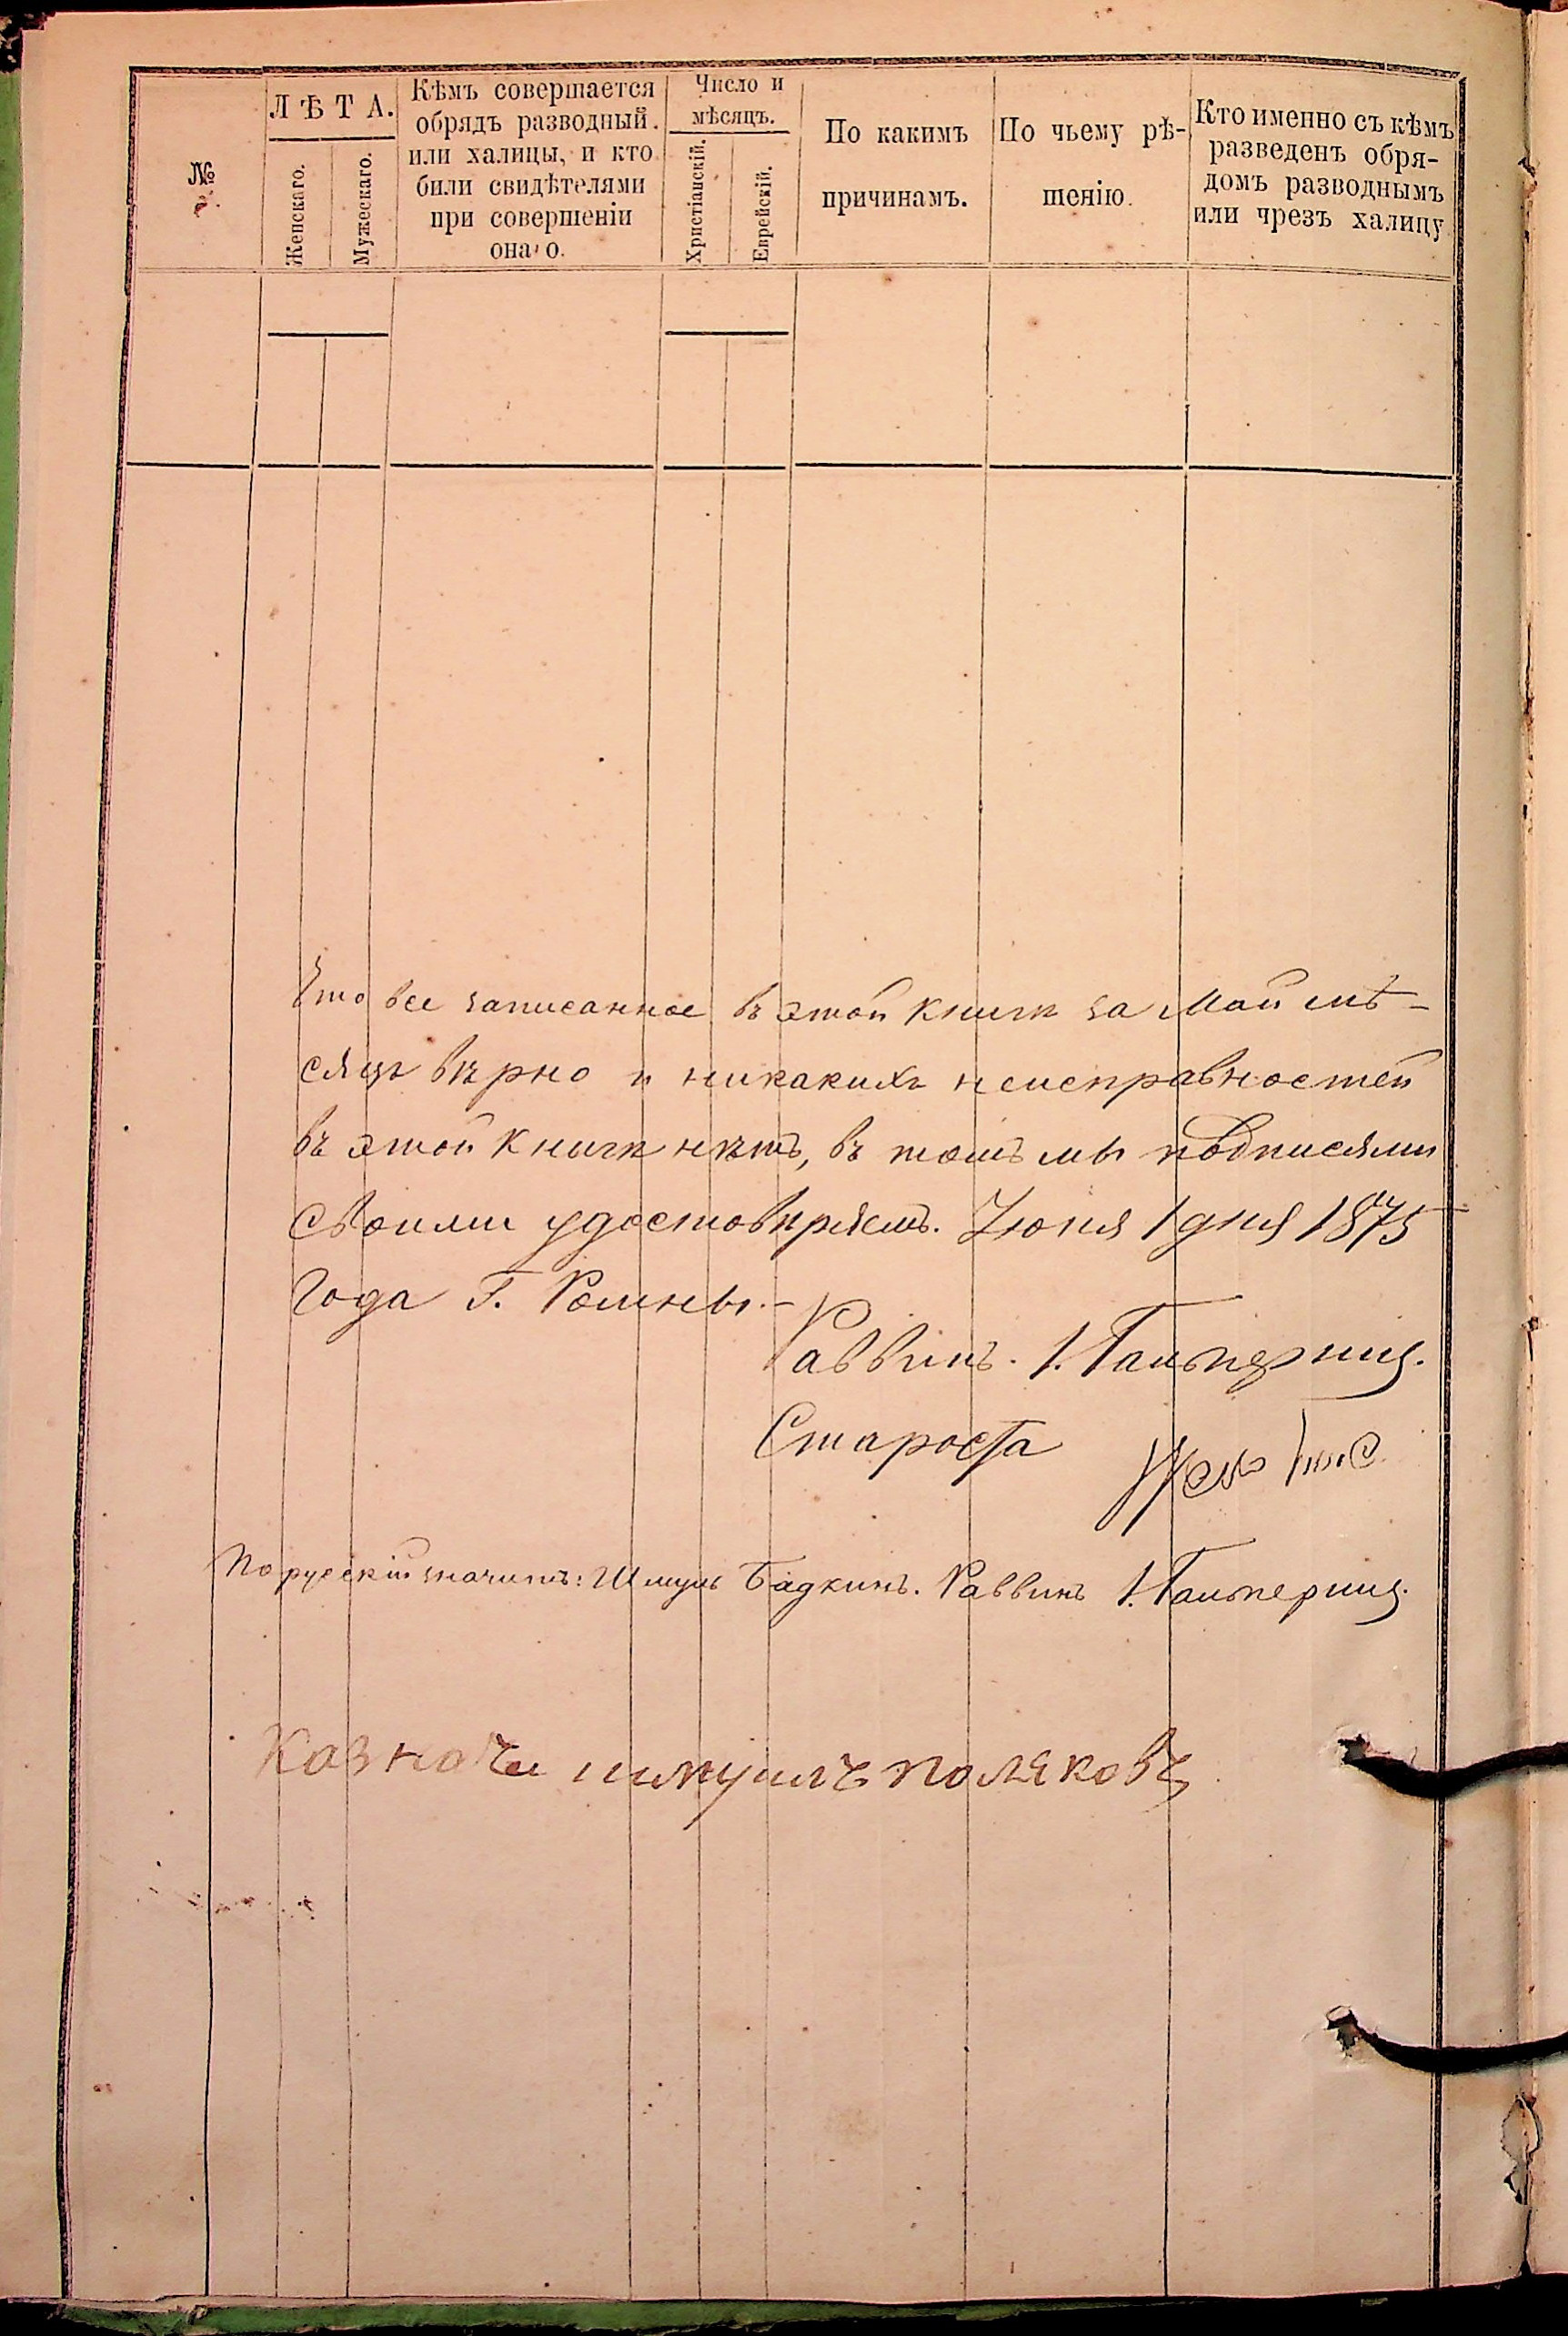 №
ЛѢТА.
Женскаго.
Мужескаго.
Кѣмъ совершается
обрядъ разводный.
или халицы, и кто
били свидѣтелями
при совершеніи
она о.
Число и
мѣсяцъ.
Христіанскій.
Еврейскій.
По какимъ
причинамъ.
По чьему рѣ-
шенію.
Кто именно съ кѣмъ
разведенъ обря-
домъ разводнымъ
или чрезъ халицу
Что все записанное въ этой книгѣ за Май мѣ-
сяцъ вѣрно и никакихъ неисправностей
въ этой книгѣ нѣтъ, въ томъ мы подписями
своими удостовѣряемъ. Іюня 1 дня 1875
года Г. Ромны.-
Раввинъ. І. Гальперинъ.
Староста
По русскій значитъ: Шмуль Бадкинъ. Раввинъ І. Гальперинъ.
Казначеи шмуилъ поляковъ